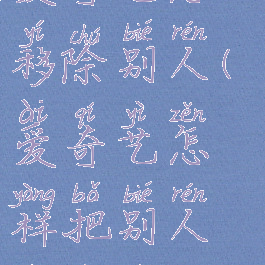 yí chú bié rén
移除别人(
ài qí yì zěn
爱奇艺怎
yàng bǎ bié rén
样把别人